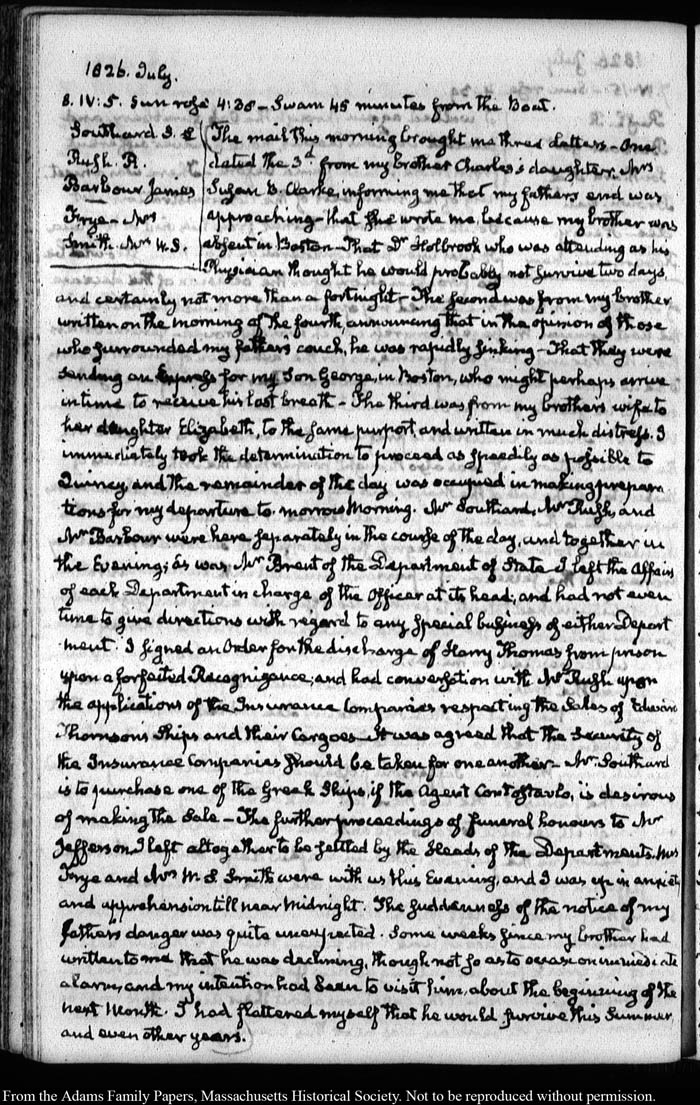 1826. July.
8. IV: 5. Sun rose 4:38 - Swam 45 minutes from the Boat.
Southard S. L
Rush. R.
Barbour James
Frye - Mrs
Smith. Mrs W. S.
The mail this morning brought me three Letters - One
dated the 3d from my brother Charles's daughter, Mrs
Susan B. Clarke, informing me that my fathers end was
approaching - that she wrote me, because my brother was
absent in Boston - That Dr Holbrook who was attending as his
Physician thought he would probably not survive two days,
and certainly not more than a fortnight - The second was from my brother
written on the morning of the fourth, announcing that in the opinion of those
who surrounded my father's couch, he was rapidly sinking - That they were
sending an Express for my Son George, in Boston, who might perhaps arrive
in time to receive his last breath - The third was from my brothers wife to
her daughter Elizabeth, to the same purport, and written in much distress. I
immediately took the determination to proceed as speedily as possible to
Quincy, and the remainder of the day was occupied in making prepara
tions for my departure to-morrow Morning. Mr Southard, Mr Rush, and
Mr Barbour were here separately in the course of the day, and together in
the Evening; as was Mr Brent of the Department of State - I left the Affairs
of each Department in charge of the Officer at its head; and had not even
time to give directions with regard to any special business of either Depart
ment. I signed an Order for the discharge of Harry Thomas from prison
upon a forfeited Recognizance; and had conversation with Mr Rush upon
the applications of the Insurance Companies respecting the Sales of Edward
Thomsons Ships and their Cargoes - It was agreed that the Security of
the Insurance Companies should be taken for one another - Mr Southard
is to purchase one of the Greek Ships, if the Agent Contostavlo, is desirous
of making the Sale - The further proceedings of funeral honours to Mr
Jefferson I left altogether to be settled by the Heads of the Departments. Mrs
Frye and Mrs W. S Smith were with us this Evening, and I was up in anxiety
and apprehension till near Midnight. The suddenness of the notice of my
fathers danger was quite unexpected. Some weeks since my brother had
written to me that he was declining, though not so as to occasion immediate
alarm, and my intention had been to visit him, about the beginning of the
next Month. I had flattered myself that he would survive this Summer,
and even other years.
From the Adams Family Papers, Massachusetts Historical Society. Not to be reproduced without permission.